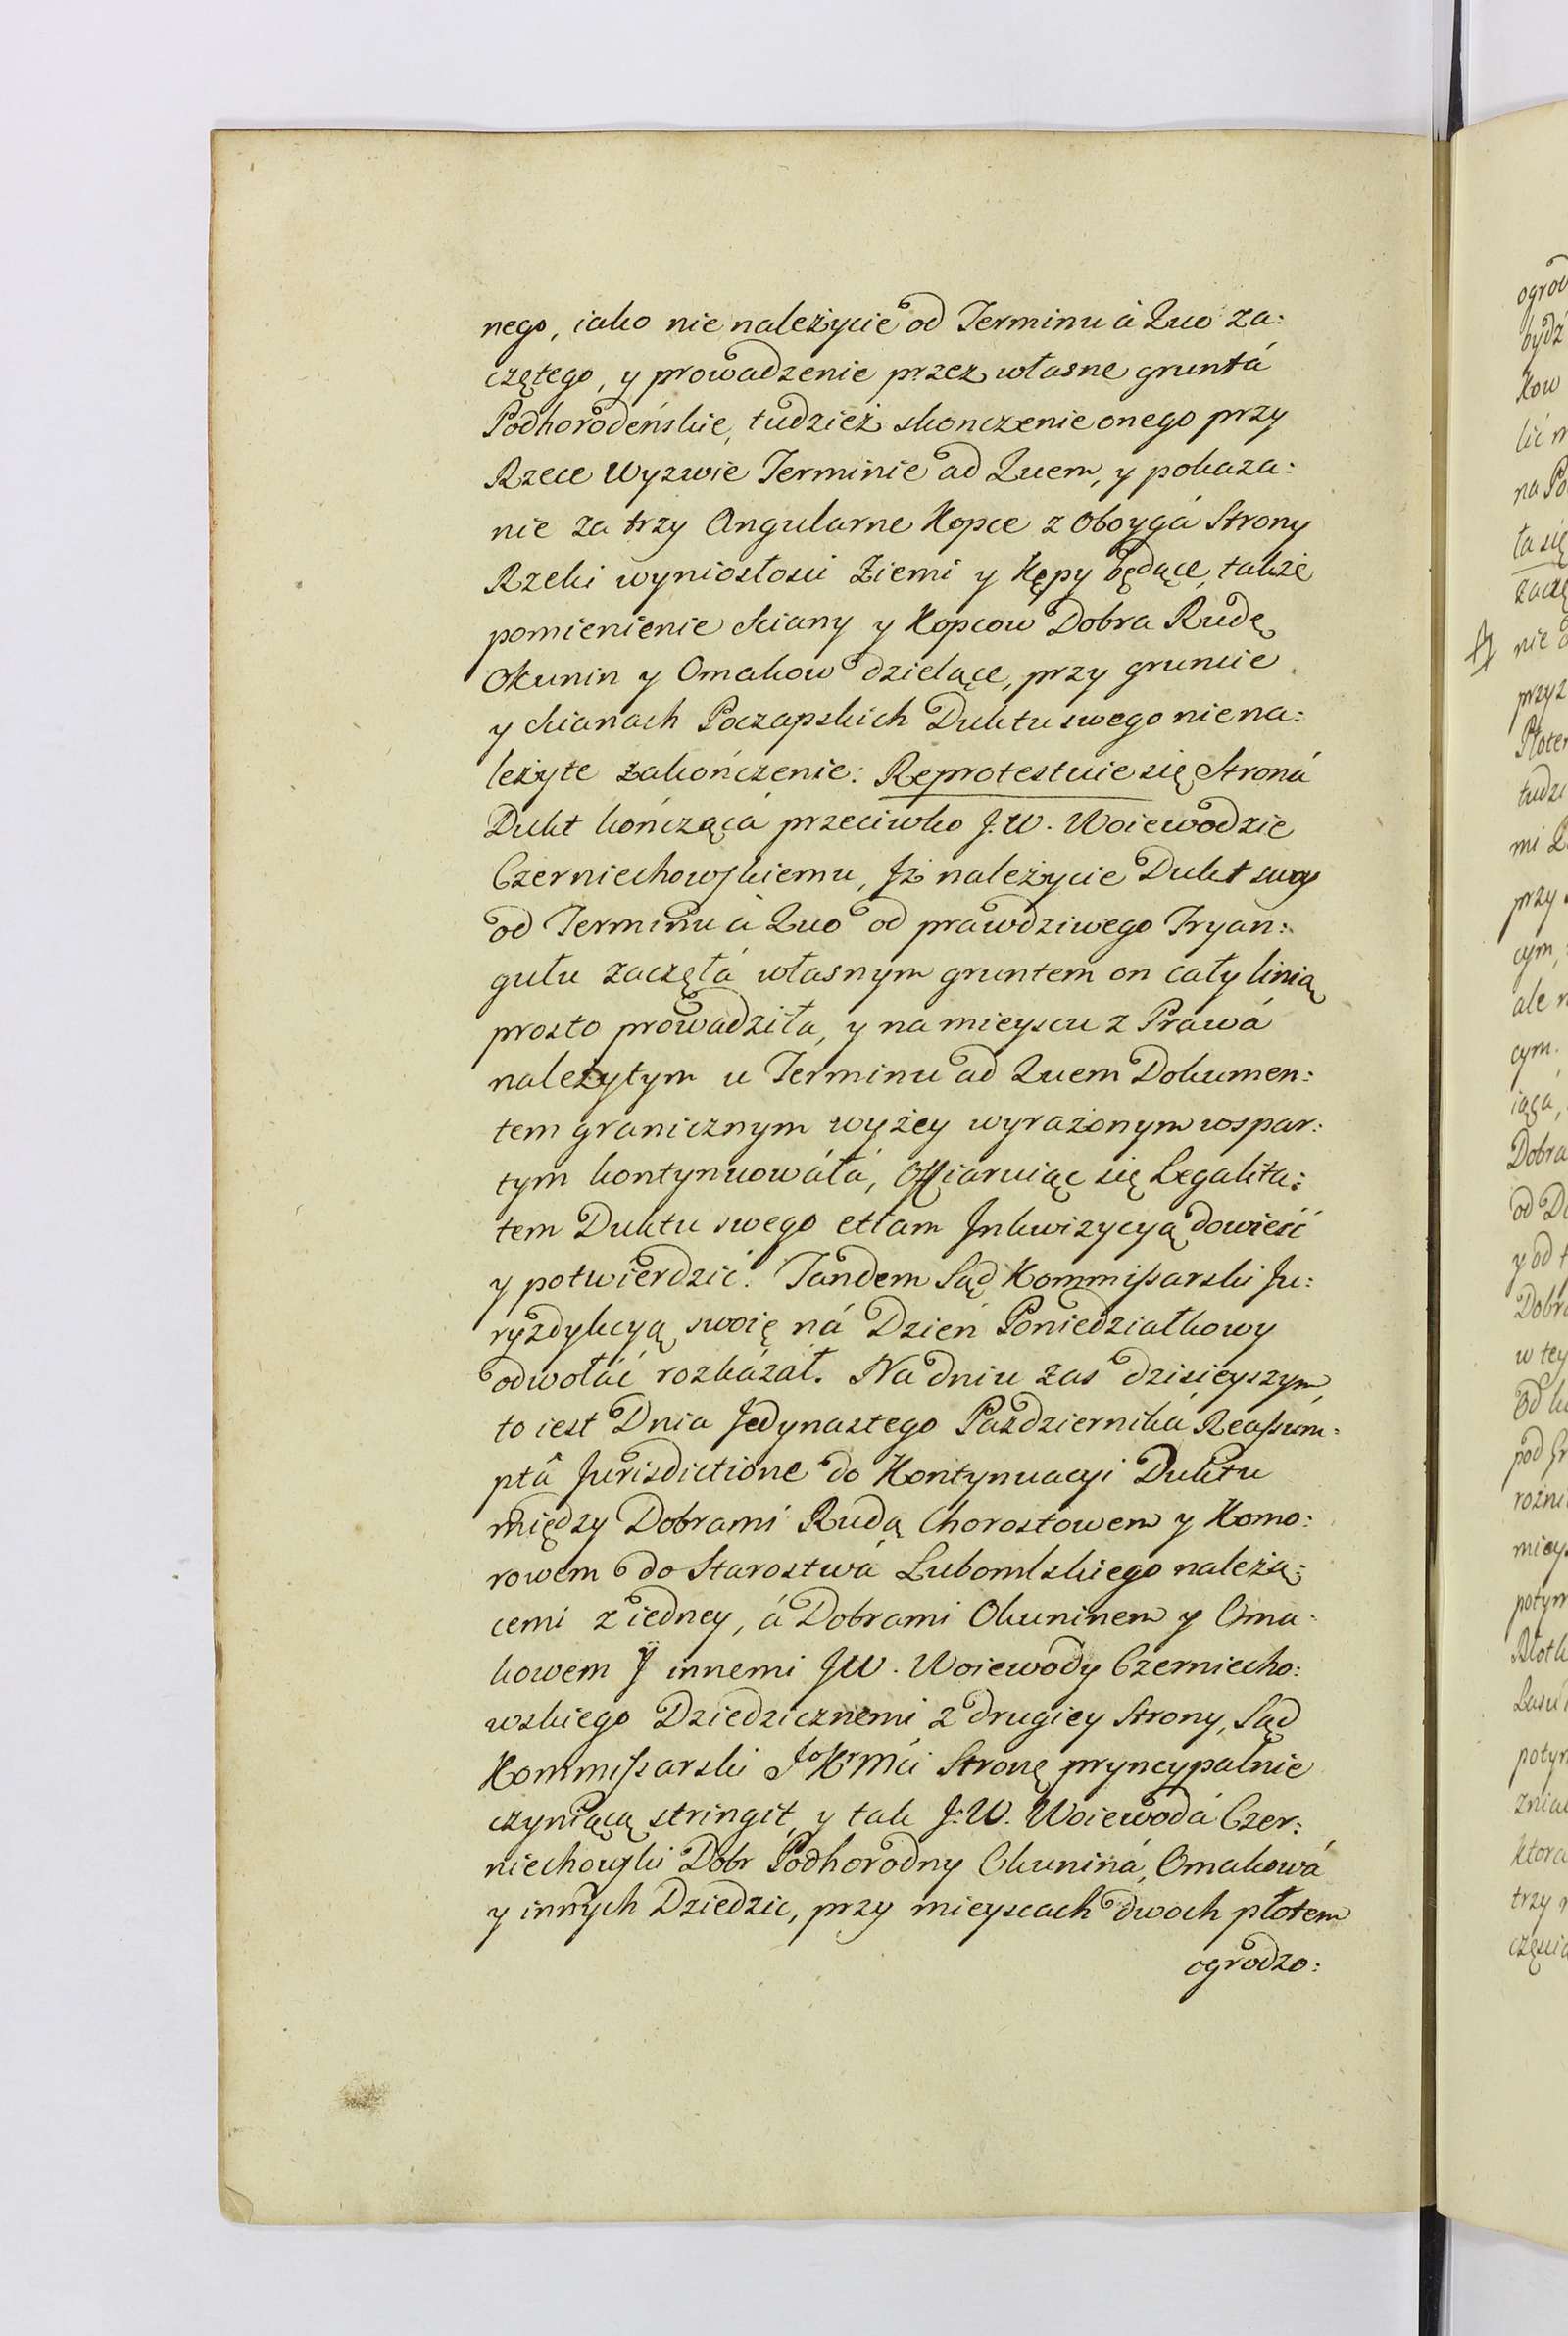 nego, iako nie należycie od Terminu à Quo za:
czętego, y prowadzenie przez własne gruntá
Podhorodeńskie, tudzież skonczenie onego przy
Rzece Wyzwie Terminie ad Quem, y pokaza:
nie za trzy Angularne Kopce z oboygá Strony
Rzeki wyniosłosci Ziemi y Kępy będące, także
pomienienie sciany y Kopcow Dobra Rudę
Okunin y Omakow dzielące, przy gruncie
y scianach Poczapskich Duktu swego niena:
leżyte zakończenie: Reprotestuie się Stroná
Dukt kończącá przeciwko J.W. Woiewodzie
Czerniechowskiemu, Jż należycie Dukt swoy
od Terminu à Quo od prawdziwego Tryan:
gułu zaczęłá własnym gruntem on cały linią
prosto prowadziła, y na mieyscu z Prawá
należytym u Terminu ad Quem Dokumen:
tem granicznym wyżey wyrażonym wspar:
tym kontynuowáłá, offiaruiąc się Legalita:
tem Duktu swego etiam Jnkwizycyą dowieść
y potwierdzić. Tandem Sąd Kommissarski Ju:
ryzdykcyą swoię ná Dzień Poniedziałkowy
odwołáć rozkázał. Na dniu zas dzisieyszym
to iest Dnia Jedynastego Pazdziernika Reassum:
ptâ Jurisdictione do Kontynuacyi Duktu
między Dobrami Rudą Chorostowem y Komo:
rowem do Starostwá Lubomlskiego należą:
cemi z iedney, á Dobrami Okuninem y Oma:
kowem Ÿ innemi JW. Woiewody Czerniecho:
wskiego Dziedzicznemi z drugiey Strony, Sąd
Kommissarski JoKrMci Stronę pryncypalnie
czyniącą stringit, y tak J.W. Woiewodá Czer:
niechowski Dobr Podhorodny Okuniná, Omakowá
y innych Dziedzic, przy mieyscach dwoch płotem
ogrodzo: